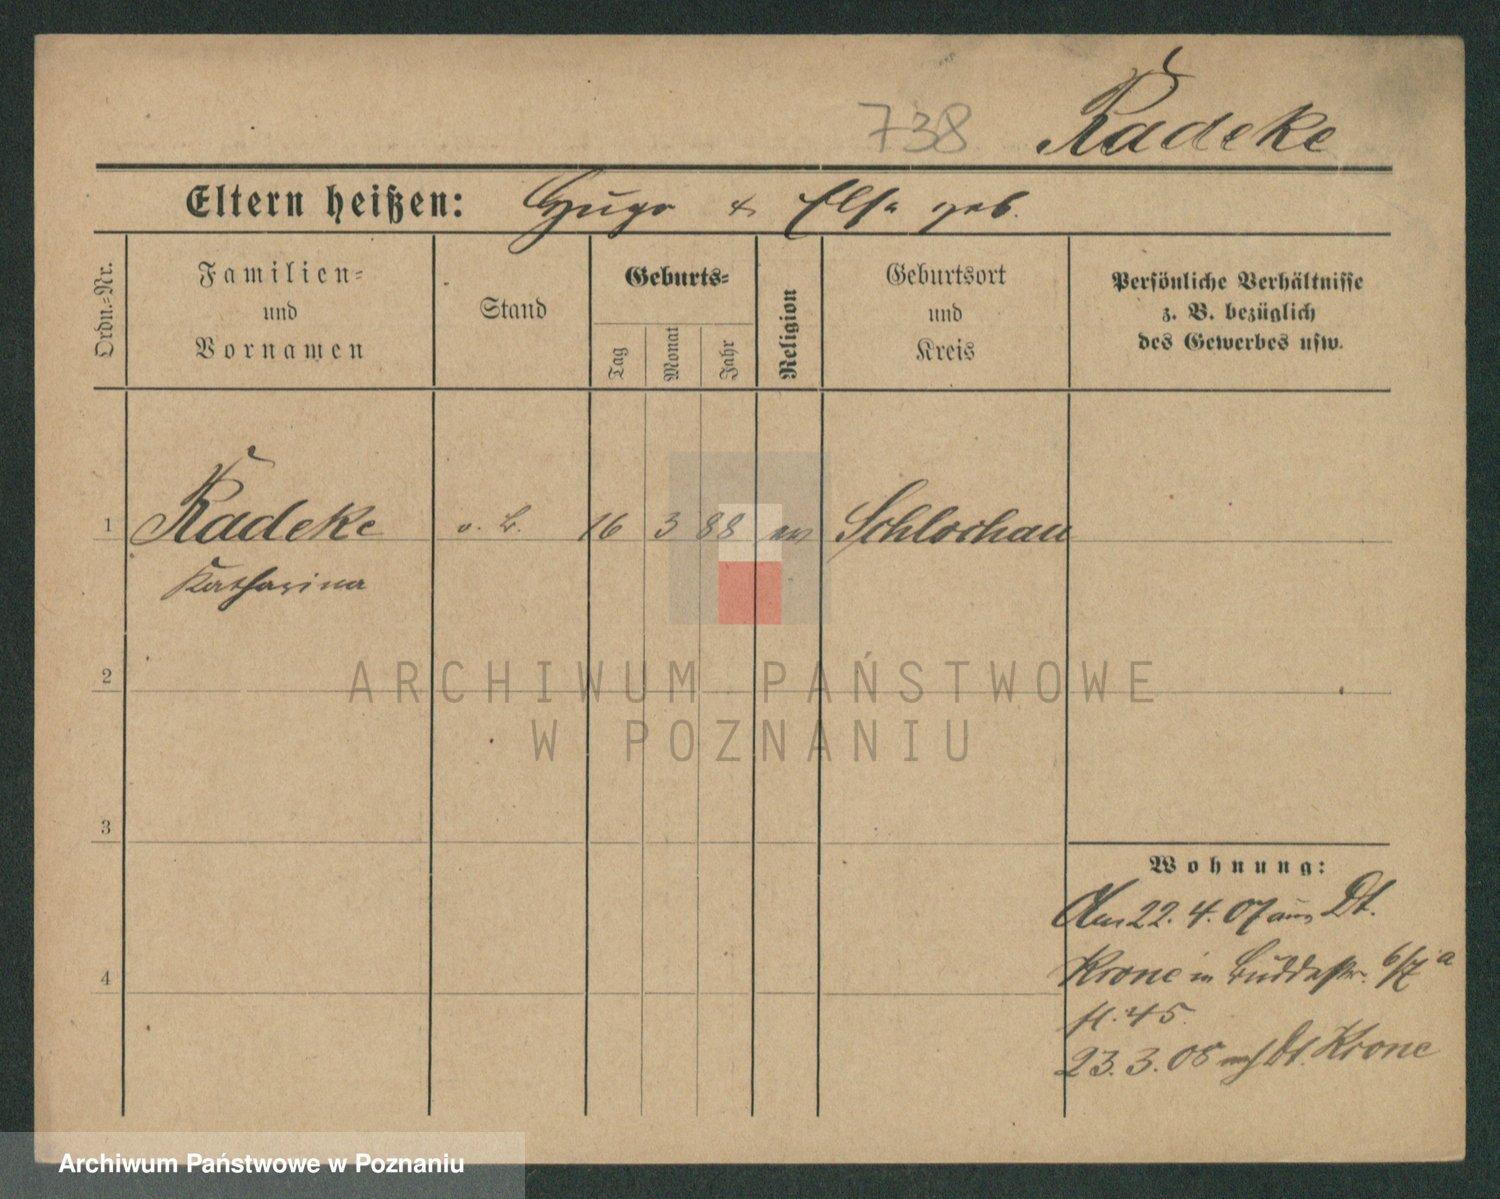 738 Radeke
Eltern heißen: Hugo & Else geb.
Ordn.=Nr.
Familien=
und
Vornamen
Stand
Geburts=
Tag
Monat
Jahr
Religion
Geburtsort
und
Kreis
Persönliche Verhältnisse
z. B. bezüglich
des Gewerbes usw.
1 Radeke o. B. 16 3 88 ev Schlochau
Katharina
2
ARCHIWUM PAŃSTWOWE
W POZNANIU
3
Wohnung:
Am 22. 4. 07 aus Dt.
4
Krone in Buddestr. 6/7 a
fl. 45.
23. 3. 08 nach Dt. Krone
Archiwum Państwowe w Poznaniu